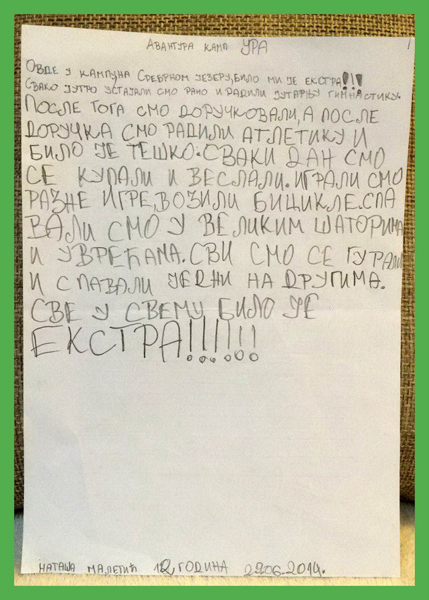 АВАНТУРА КАМП УРА
ОВДЕ У КАМПУ НА СРЕБРНОМ ЈЕЗЕРУ, БИЛО МИ ЈЕ ЕКСТРА!!!
СВАКО ЈУТРО УСТАЈАЛИ СМО РАНО И РАДИЛИ ЈУТАРЊУ ГИМНАСТИКУ.
ПОСЛЕ ТОГА СМО ДОРУЧКОВАЛИ, А ПОСЛЕ
ДОРУЧКА СМО РАДИЛИ АТЛЕТИКУ И
БИЛО ЈЕ ТЕШКО. СВАКИ ДАН СМО
СЕ КУПАЛИ И ВЕСЛАЛИ. ИГРАЛИ СМО
РАЗНЕ ИГРЕ, ВОЗИЛИ БИЦИКЛЕ. СПА
ВАЛИ СМО У ВЕЛИКИМ ШАТОРИМА
И У ВРЕЋАМА. СВИ СМО СЕ ГУРАЛИ
И СПАВАЛИ ЈЕДНИ НА ДРУГИМА.
СВЕ У СВЕМУ БИЛО ЈЕ
ЕКСТРА!!!!!!
НАТАША МАЛЕТИЋ 12 ГОДИНА 29.06.2014.